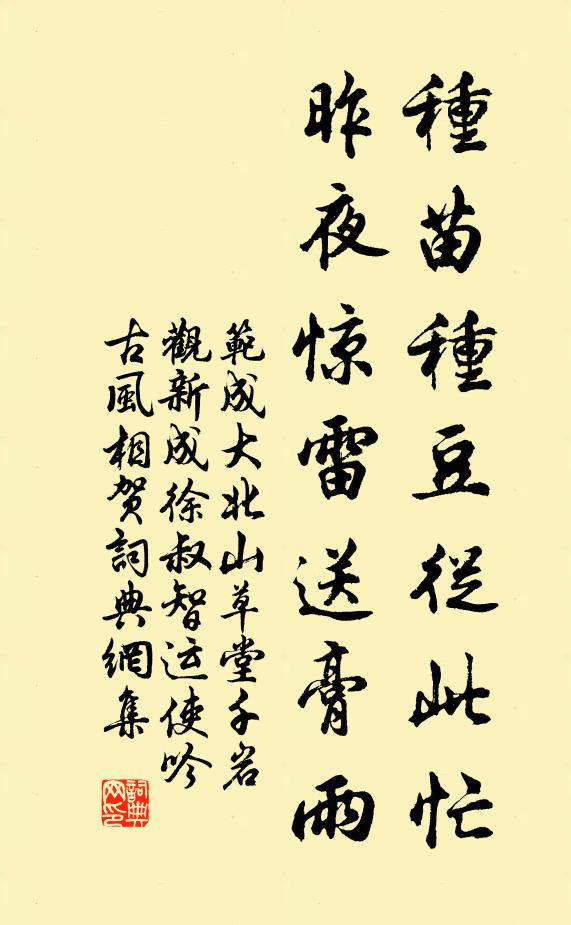 種苗種豆從此忙
昨夜惊雷送膏雨
範成大北山草堂千岩
觀新成徐叔智运使吟
古風相贺詞典網集
詞典网印